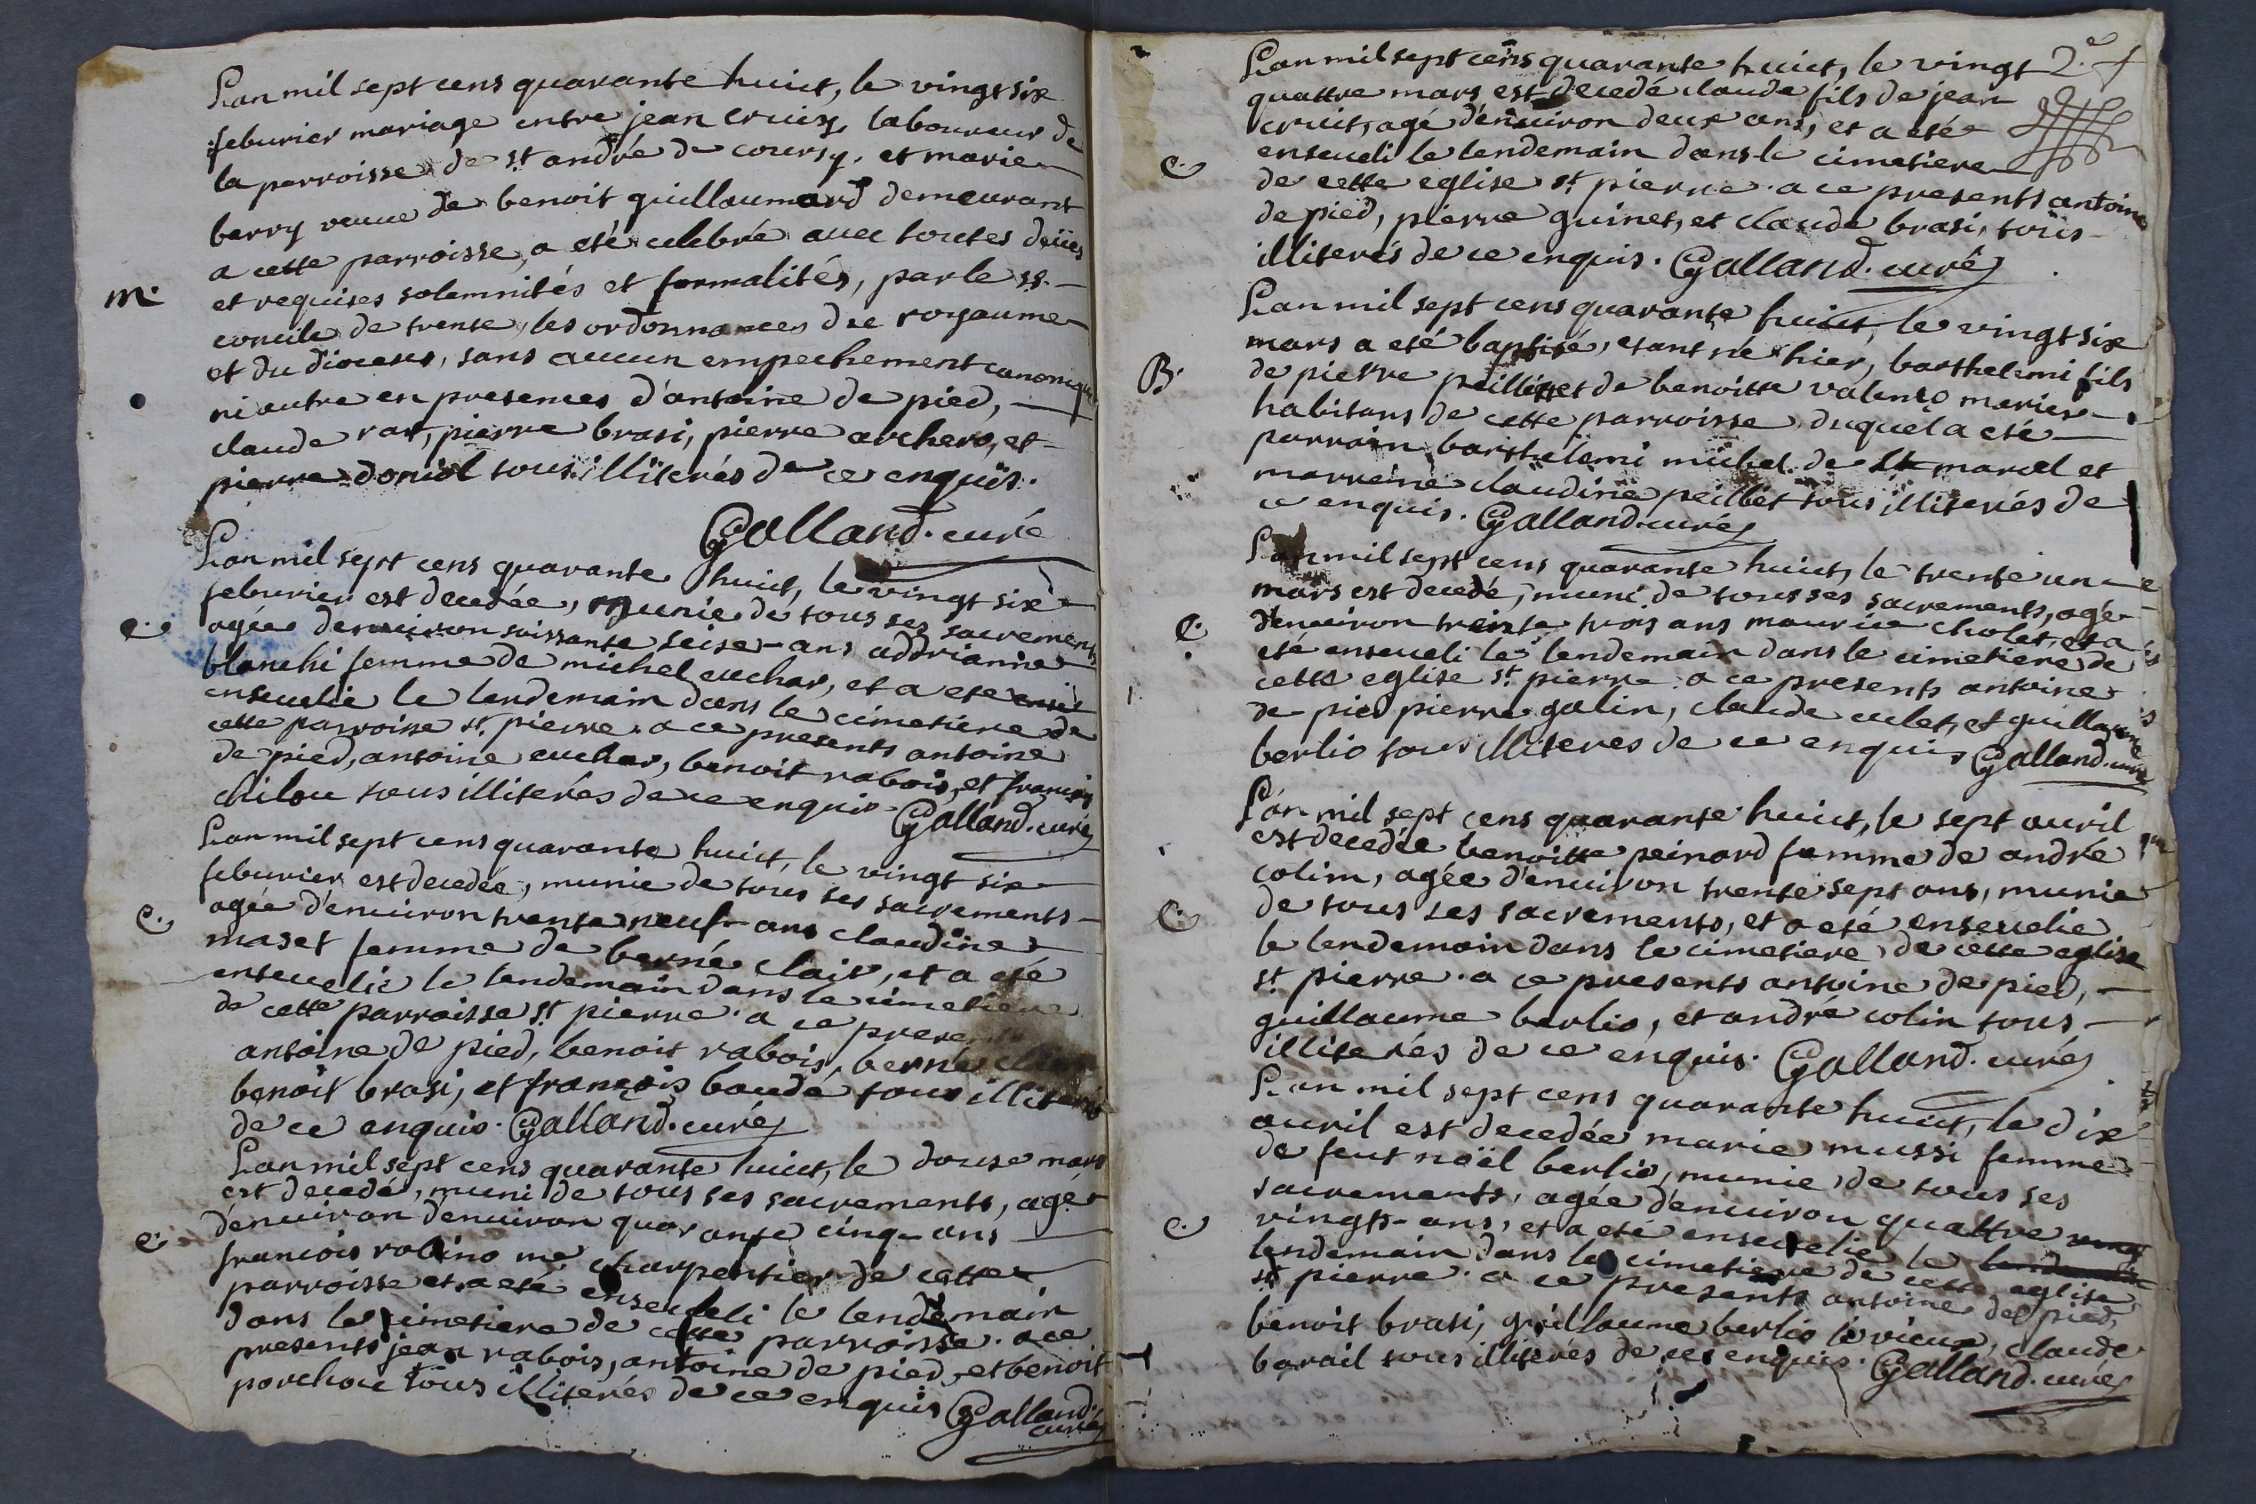 L'an mil sept cens quarante huict, le vingt six
feburier mariage entre jean cruisy, laboureur de
la parroisse de st andré de coursy, et marie
berry veuue de benoit guillaumard demeurant
a cette parroisse, a eté celebré auec toutes deües
et requises solemnités et formalités, par le ss.
m.
concile de trente, les ordonnances du royaume
et du dioceses, sans aucun empechement canonique
ni autre en presences d'antoine de pied,
claude rat, pierre brasi, pierre archero, et
pierre doniol tous illiterés de ce enquis.
Galland. curé
L'an mil sept cens quarante huict, le vingt six
feburier est decedée, munie de tous ses sacrements
e.
agée d'enuiron soissante seise ans addrianne
blanchi femme de michel cuchar, et a eté
enseuelie le lendemain dans le cimetiere de
cette parroisse st. pierre. a ce presents antoine
de pied, antoine cuchar, benoit rabois, et francois
chilou tous illiterés de ce enquis. Galland. curé
L'an mil sept cens quarante huict, le vingt six
feburier est decedée, munie de tous ses sacrements
e.
agée d'enuiron trente neuf ans claudine
maset femme de berné clair, et a eté
enseuelie le lendemain dans le cimetiere
de cette parroisse st. pierre. a ce
antoine de pied, benoit rabois, berné
benoit brasi, et francois baudé tous illiterés
de ce enquis. Galland. curé
L'an mil sept cens quarante huict, le douse mars
est decedé, muni de tous ses sacrements, agé
d'enuiron d'enuiron quarante cinq ans
e.
francois robino me charpentier de cette
parroisse et a eté enseueli le lendemain
dans le cimetiere de cette parroisse. a ce
presents jean rabois, antoine de pied, et benoit
porchou tous illiterés de ce enquis Galland.
curé
L'an mil sept cens quarante huict, le vingt
quattre mars est decedé claude fils de jean
cruit, agé d'enuiron deux ans, et a eté
enseueli le lendemain dans le cimetiere
e.
de cette eglise st. pierre. a ce presents antoine
de pied, pierre guinet, et claude brasi, tous
illiterés de ce enquis. Galland. curé
L'an mil sept cens quarante huict, le vingt six
mars a eté baptisé, etant né hier, barthelemi fils
B.
de pierre peillet et de benoitte valenso maries
habitans de cette parroisse duquel a eté
parrain barthelemi michel de st marcel et
marreine claudine peilbet tous illiterés de
ce enquis. Galland. curé
L'an mil sept cens quarante huict, le trente un
mars est decedé, muni de tous ses sacrements, agé
e.
d'enuiron trente trois ans maurice cholet, et a
eté enseueli le lendemain dans le cimetiere de
cette eglise st. pierre. a ce presents antoine
de pied pierre galin, claude culet, et guillaume
berlio tous illiteres de ce enquis Galland. curé
L'an mil sept cens quarante huict, le sept auril
est decedée benoitte peinard femme de andré
colin, agée d'enuiron trente sept ans, munie
e.
de tous ses sacrements, et a eté enseuelie
le lendemain dans le cimetiere de cette eglise
st. pierre. a ce presents antoine de pied,
guillaume berlio, et andré colin tous
illiterés de ce enquis. Galland. curé
L'an mil sept cens quarante huict, le dix
auril est decedée marie mussi femme
de feut noël berlio, munie de tous ses
sacrements, agée d'enuiron quattre
e.
vingts-ans, et a eté enseuelie le
lendemain dans le cimetiere de cette eglise
st pierre. a ce presents antoine de pied,
benoit brasi, guillaume berlio le vieux, claude
barail tous illiteres de ce enquis. Galland. curé